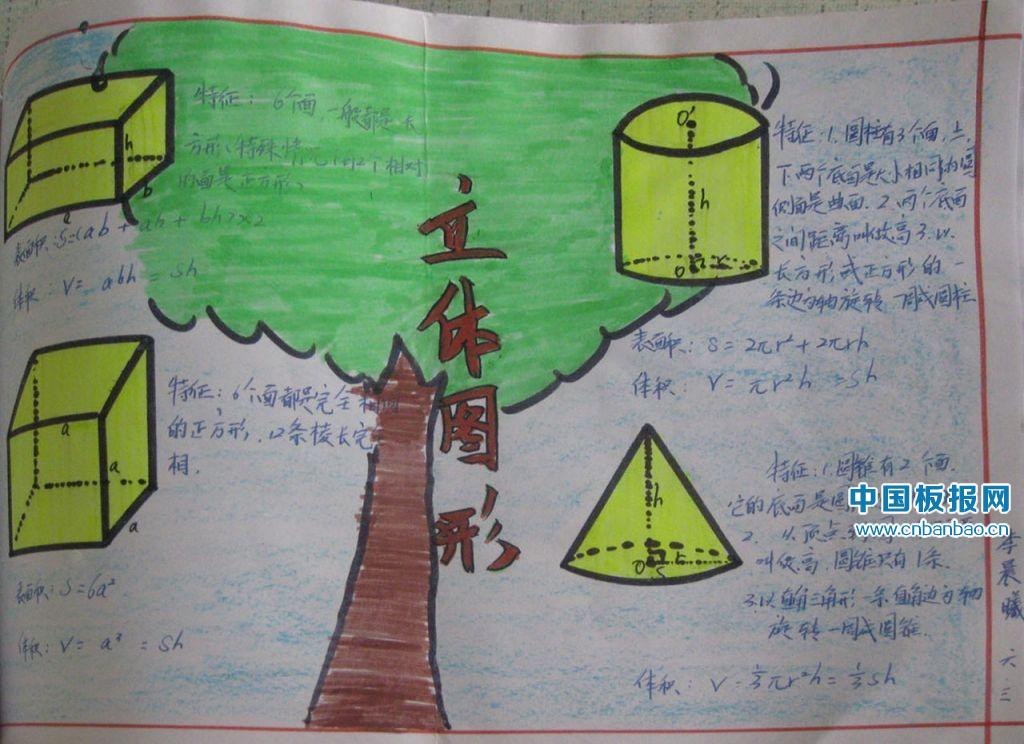 立体图形
特征： 6个面，一般都是长
方形，特殊情 相对
的面是正方形。
表面积：S=(ab + ah + bh)×2
体积：V= abh = sh
h
b
a
特征：6个面都是完全相同
的正方形，12条棱长完
相。
a
a
a
表面积：S=6a²
体积：V= a³ = sh
O'
h
O r
特征：1.圆柱有3个面，上
下两个底面是大小相同的圆
侧面是曲面。2.两个底面
之间距离叫做高 3.以
长方形或正方形的一
条边为轴旋转一周成圆柱
表面积：S=2πr²+2πrh
体积： V= πr²h =sh
h
O r
S
特征：1.圆锥有2个面.
它的底面是圆
2. 从顶点
叫做高.圆锥只有1条.
3.以直角三角形一条直角边为轴
旋转一周成圆锥.
体积： V=⅓πr²h=⅓sh
中国板报网
www.cnbanbao.cn
李晨曦 六三